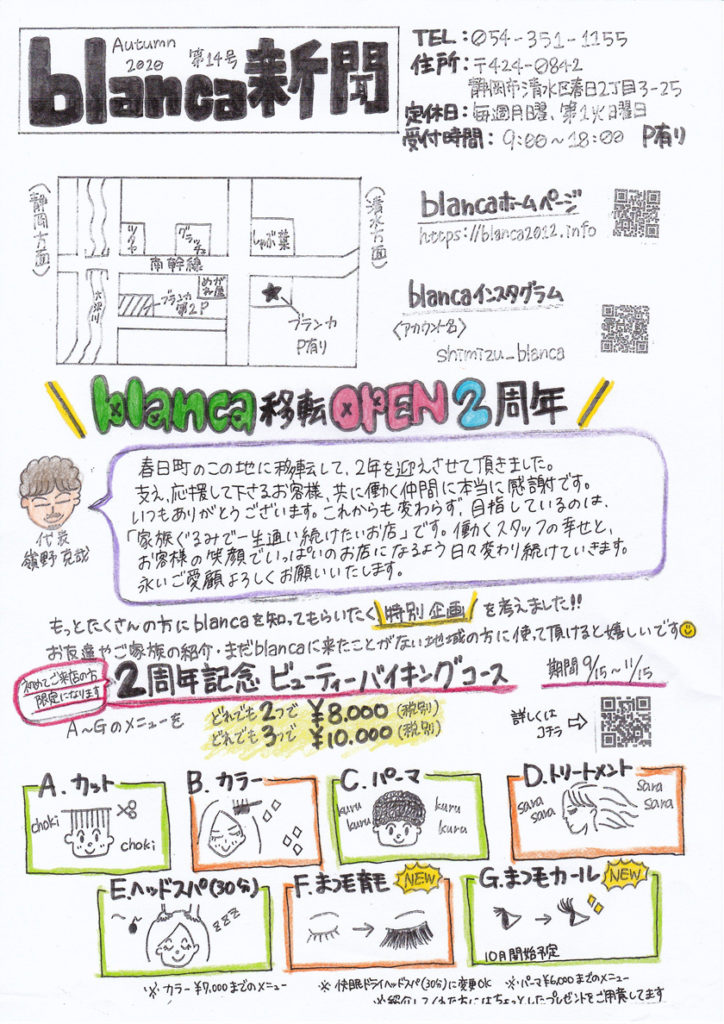 Autumn
2020
第14号
blanca新聞
TEL:054-351-1155
住所:〒424-0842
静岡市清水区春日2丁目3-25
定休日:毎週月曜、第1火曜日
受付時間: 9:00~18:00 P有り
(静岡方面)
(清水方面)
ツタヤ
グラッチェ
しゃぶ葉
南幹線
めがね屋
ブランカ
第2P
ブランカ
P有り
blancaホームページ
https://blanca2012.info
blancaインスタグラム
〈アカウント名〉
shimizu_blanca
blanca移転OPEN2周年
春日町のこの地に移転して、2年を迎えさせて頂きました。
支え、応援して下さるお客様、共に働く仲間に本当に感謝です。
いつもありがとうございます。これからも変わらず、目指しているのは、
「家族ぐるみで一生通い続けたいお店」です。働くスタッフの幸せと、
お客様の笑顔でいっぱいのお店になるよう日々変わり続けていきます。
永いご愛顧よろしくお願いいたします。
代表
もっとたくさんの方にblancaを知ってもらいたく 特別企画 を考えました!!
お友達やご家族の紹介・まだblancaに来たことがない地域の方に使って頂けると嬉しいです
初めてご来店の方
限定になります
2周年記念 ビューティーバイキングコース
期間 9/15~11/15
A~Gのメニューを
どれでも2つで ¥8.000 (税別)
どれでも3つで ¥10.000 (税別)
詳しくは
コチラ
A.カット
choki
choki
B.カラー
C.パーマ
kuru
kuru
kuru
kuru
D.トリートメント
sara
sara
sara
sara
E.ヘッドスパ(30分)
zzz
F.まつ毛育毛
NEW
G.まつ毛カール
NEW
10月開始予定
※カラー¥7,000までのメニュー
※快眠ドライヘッドスパ(30分)に変更OK
※パーマ¥6,000までのメニュー
※紹介してくれた方にはちょっとしたプレゼントをご用意してます